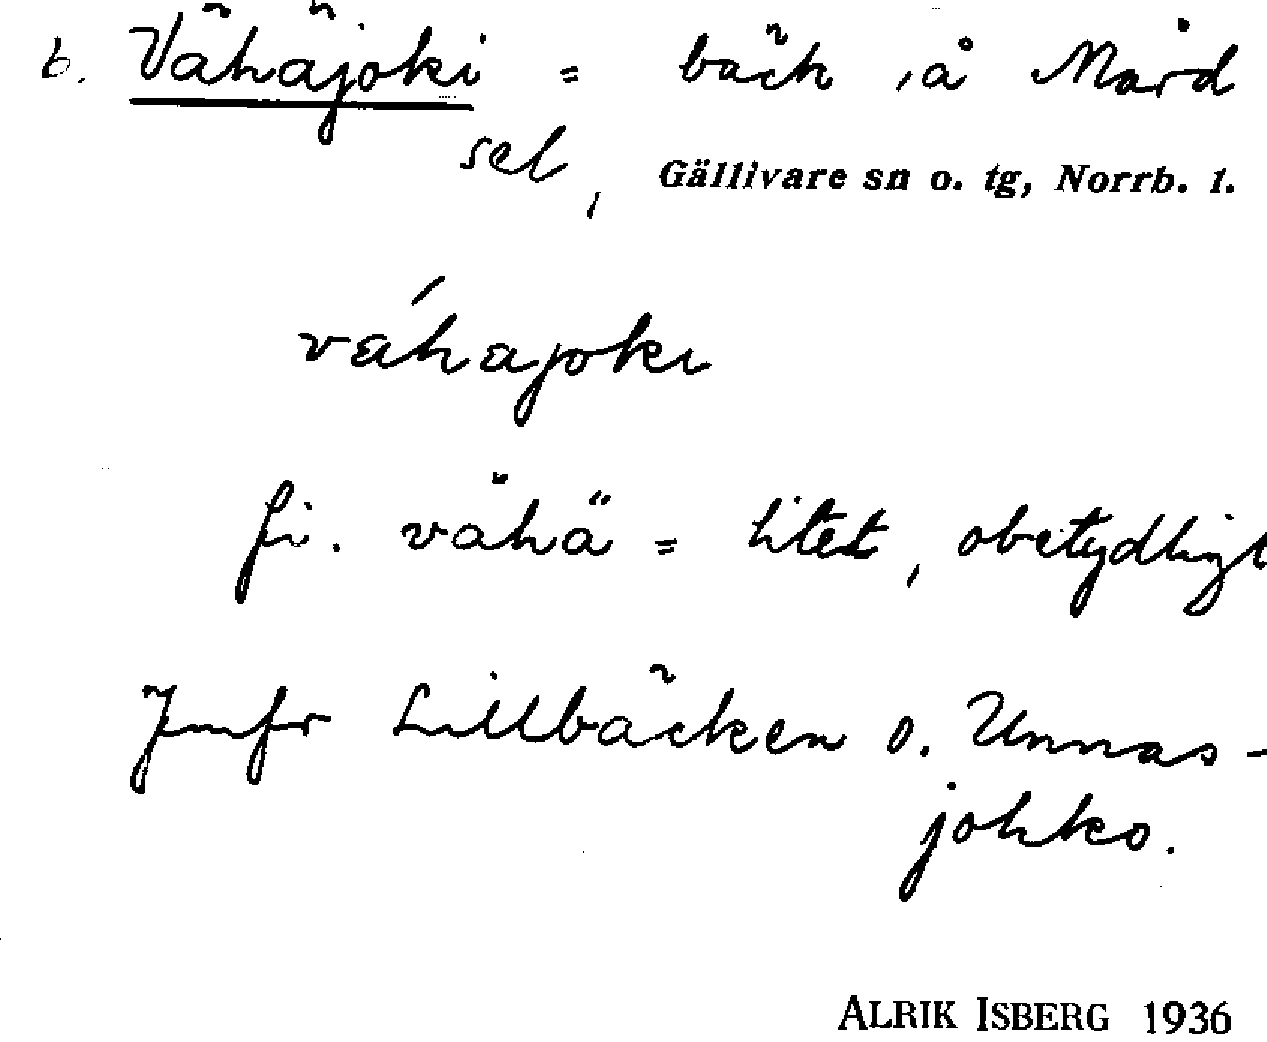 b. Vähäjoki = bäck, å Mård
sel, Gällivare sn o. tg, Norrb. l.
váhajoki
fi. vähä = litet, obetydligt
Jmfr Lillbäcken o. Unnas-
johko.
ALRIK ISBERG 1936